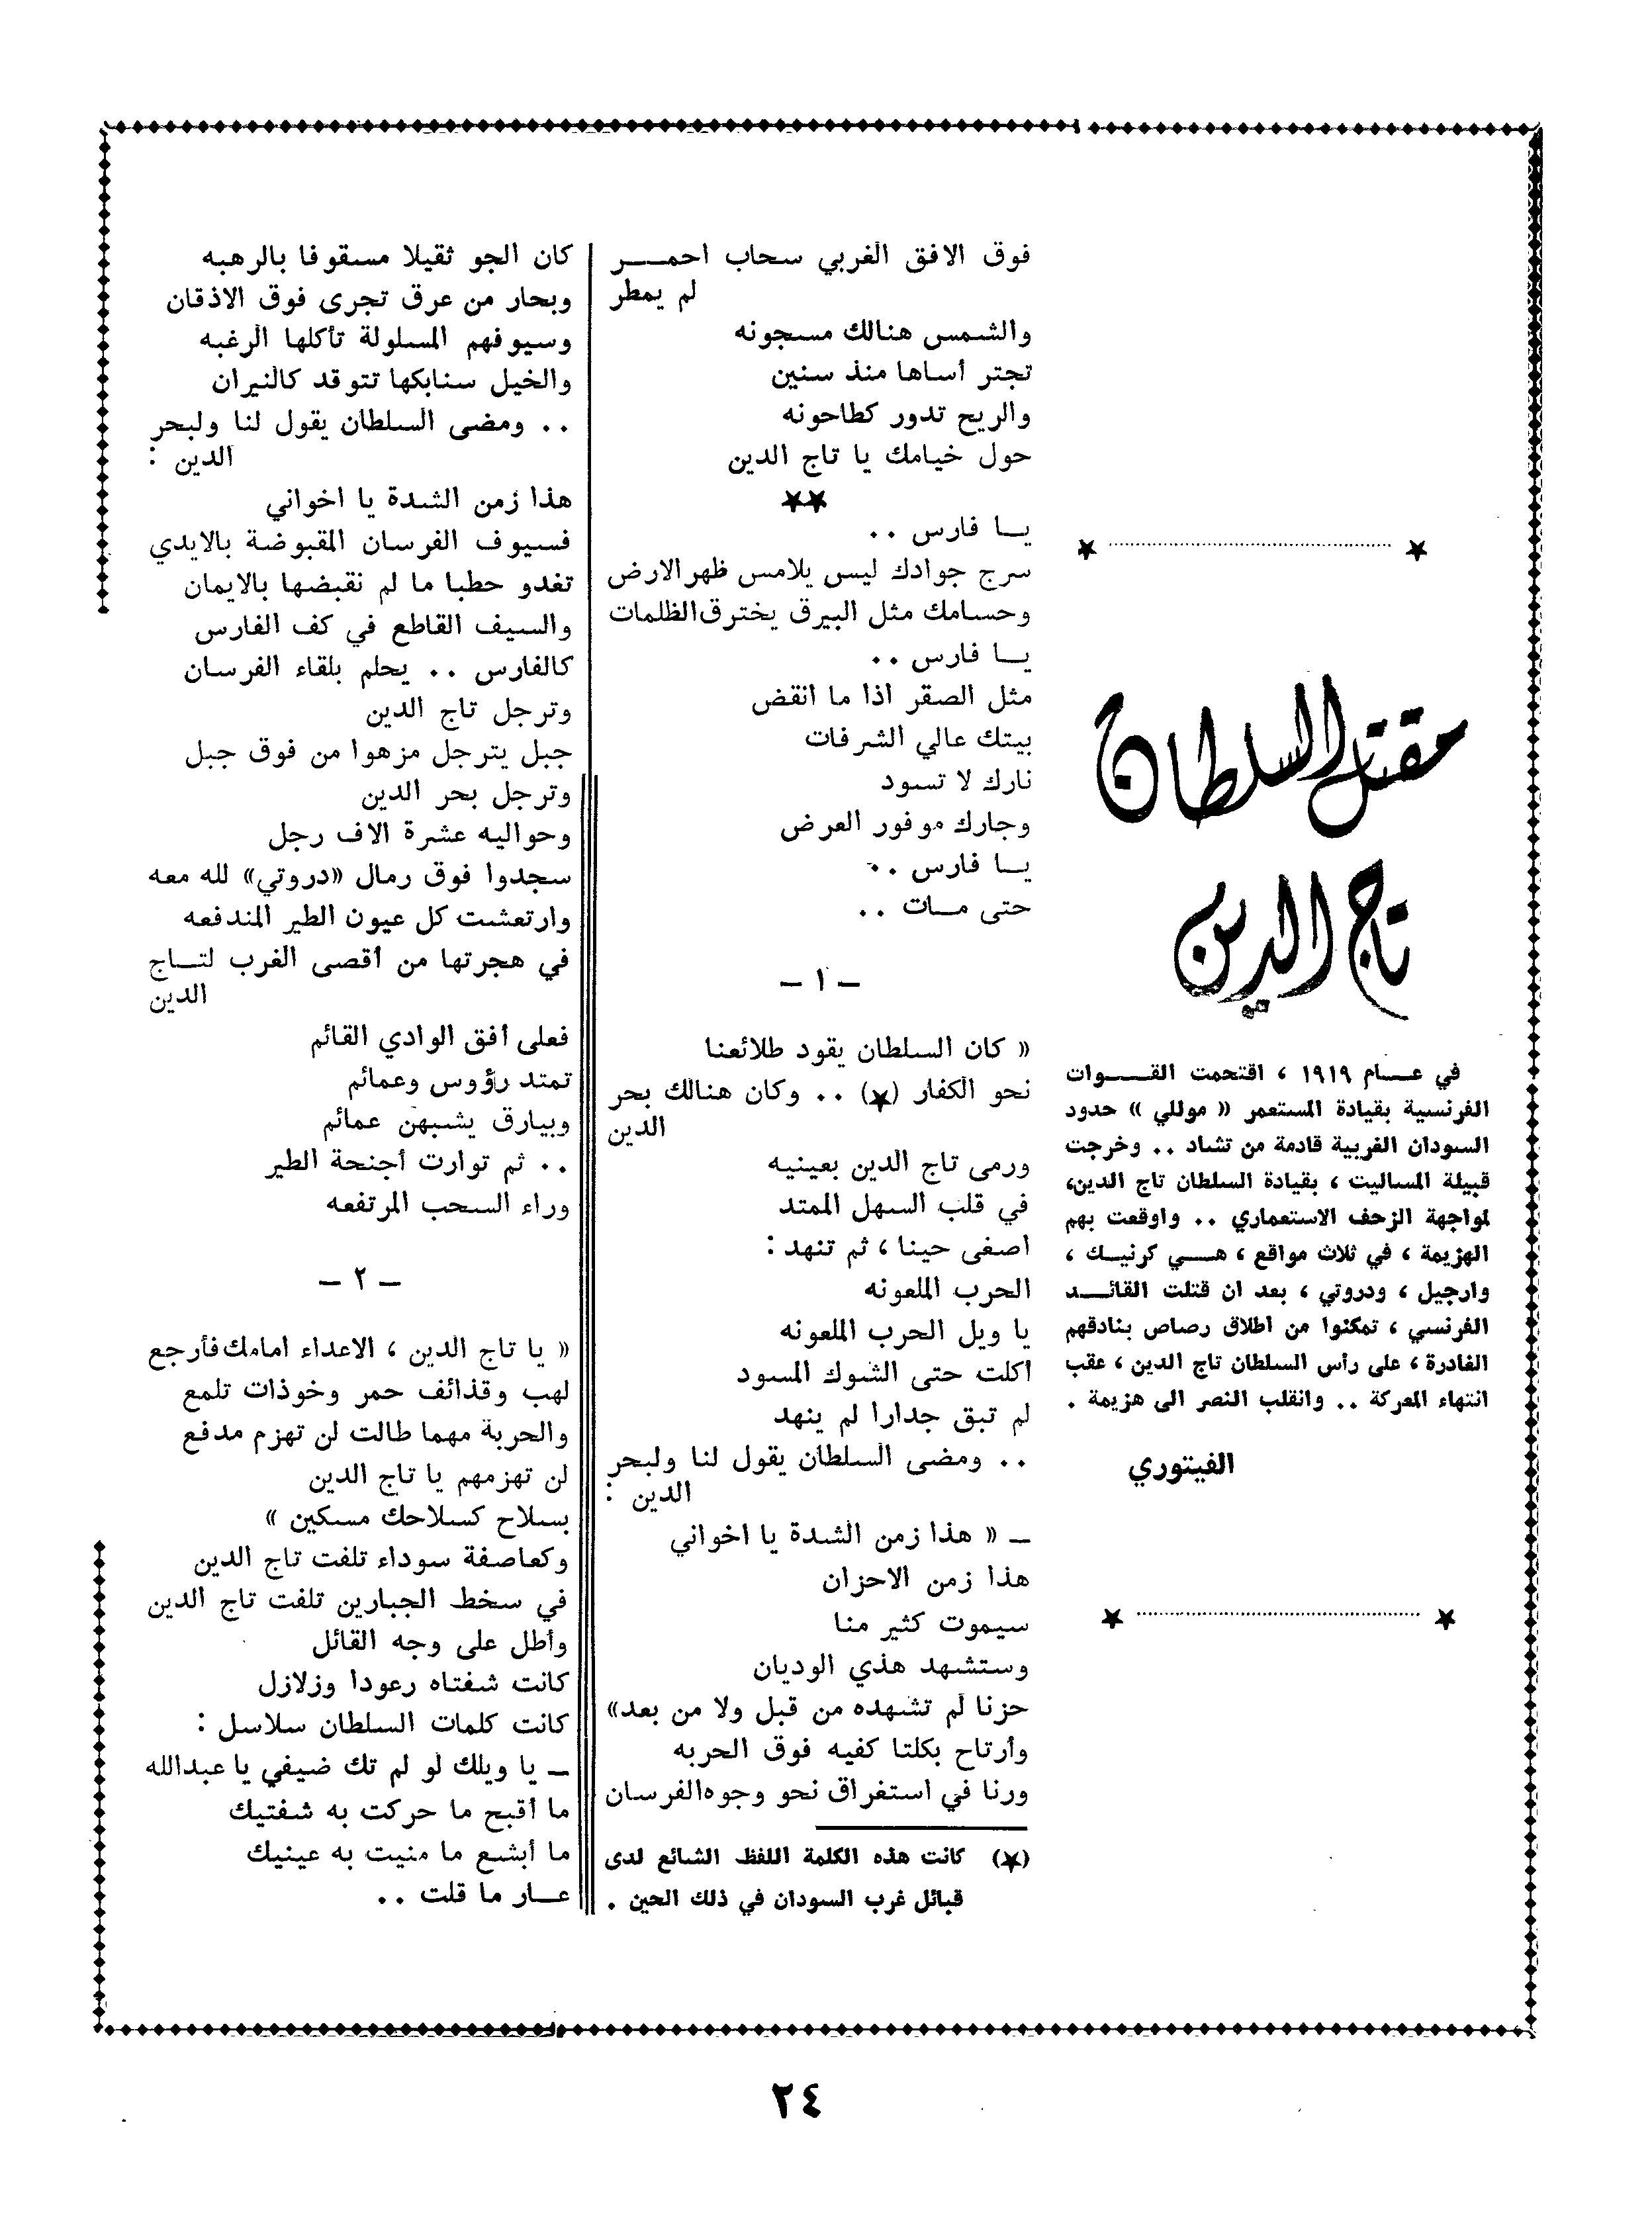 مقتل السلطان
تاج الدين
في عـــام ١٩١٩ ، اقتحمت القـــوات
الفرنسية بقيادة المستعمر « موللي » حدود
السودان الغربية قادمة من تشاد .. وخرجت
قبيلة المساليت ، بقيادة السلطان تاج الدين،
لمواجهة الزحف الاستعماري .. واوقعت بهم
الهزيمة ، في ثلاث مواقع ، هـــي كرنيـك ،
وارجيل ، ودروتي ، بعد ان قتلت القائـــد
الفرنسي ، تمكنوا من اطلاق رصاص بنادقهم
الغادرة ، على رأس السلطان تاج الدين ، عقب
انتهاء المعركة .. وانقلب النصر الى هزيمة .
الفيتوري
فوق الافق الغربي سحاب احمـــر
لم يمطر
والشمس هنالك مسجونه
تجتر أساها منذ سنين
والريح تدور كطاحونه
حول خيامك يا تاج الدين
★★
يــا فارس ..
سرج جوادك ليس يلامس ظهر الارض
وحسامك مثل البيرق يخترق الظلمات
يــا فارس ..
مثل الصقر اذا ما انقض
بيتك عالي الشرفات
نارك لا تسود
وجارك موفور العرض
يــا فارس ..
حتى مــات ..
– ١ –
« كان السلطان يقود طلائعنا
نحو الكفار (★) .. وكان هنالك بحر
الدين
ورمى تاج الدين بعينيه
في قلب السهل الممتد
اصغى حينا ، ثم تنهد :
الحرب الملعونه
يا ويل الحرب الملعونه
أكلت حتى الشوك المسود
لم تبق جدارا لم ينهد
.. ومضى السلطان يقول لنا ولبحر
الدين :
– « هذا زمن الشدة يا اخواني
هذا زمن الاحزان
سيموت كثير منا
وستشهد هذي الوديان
حزنا لم تشهده من قبل ولا من بعد»
وأرتاح بكلتا كفيه فوق الحربه
ورنا في استغراق نحو وجوه الفرسان
(★) كانت هذه الكلمة اللفظ الشائع لدى
قبائل غرب السودان في ذلك الحين .
كان الجو ثقيلا مسقوفا بالرهبه
وبحار من عرق تجرى فوق الاذقان
وسيوفهم المسلولة تأكلها الرغبه
والخيل سنابكها تتوقد كالنيران
.. ومضى السلطان يقول لنا ولبحر
الدين :
هذا زمن الشدة يا اخواني
فسيوف الفرسان المقبوضة بالايدي
تغدو حطبا ما لم نقبضها بالايمان
والسيف القاطع في كف الفارس
كالفارس .. يحلم بلقاء الفرسان
وترجل تاج الدين
جبل يترجل مزهوا من فوق جبل
وترجل بحر الدين
وحواليه عشرة الاف رجل
سجدوا فوق رمال «دروتي» لله معه
وارتعشت كل عيون الطير المندفعه
في هجرتها من أقصى الغرب لتــاج
الدين
فعلى أفق الوادي القائم
تمتد رؤوس وعمائم
وبيارق يشبهن عمائم
.. ثم توارت أجنحة الطير
وراء السحب المرتفعه
– ٢ –
« يا تاج الدين ، الاعداء امامك فأرجع
لهب وقذائف حمر وخوذات تلمع
والحربة مهما طالت لن تهزم مدفع
لن تهزمهم يا تاج الدين
بسلاح كسلاحك مسكين »
وكعاصفة سوداء تلفت تاج الدين
في سخط الجبارين تلفت تاج الدين
وأطل على وجه القائل
كانت شفتاه رعودا وزلازل
كانت كلمات السلطان سلاسل :
– يا ويلك لو لم تك ضيفي يا عبدالله
ما أقبح ما حركت به شفتيك
ما أبشع ما منيت به عينيك
عـــار ما قلت ..
٢٤